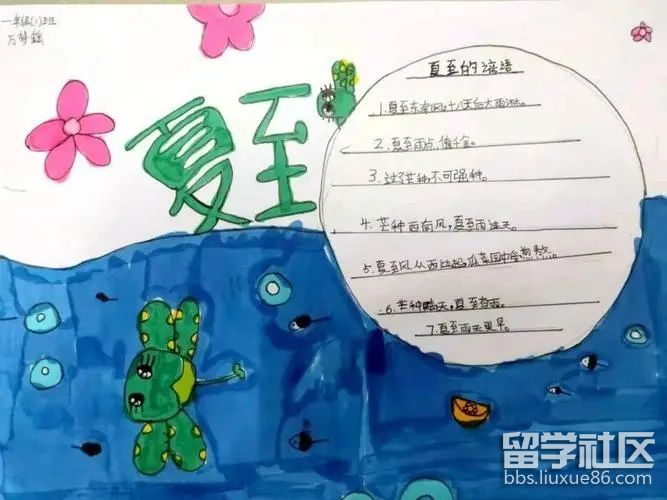 一年级(1)班
万梦鑫
夏至
夏至的谚语
1.夏至东南风,十八天后大雨淋。
2.夏至雨点,值千金。
3.过了芒种,不可强种。
4.芒种西南风,夏至雨连天。
5.夏至风从西边起,瓜菜园中受煎熬。
6.芒种晴天,夏至有雨。
7.夏至雨天更旱。
留学社区
bbs.liuxue86.com